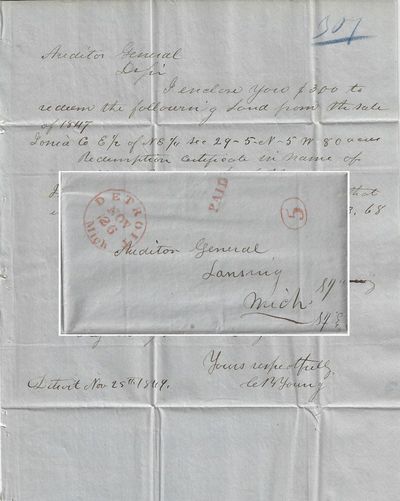 307
Auditor General
I enclose you $300 to
redeem the following Land from the sale
of 1847
Ionia Co E½ of NE¼ sec 29-5-N-5 W 80 acres
Redemption certificate in name of
that
68
DETROIT
Mich
NOV
26
PAID
5
Auditor General
Lansing
Mich
Yours respectfully
Young
Detroit Nov 25th 1849.